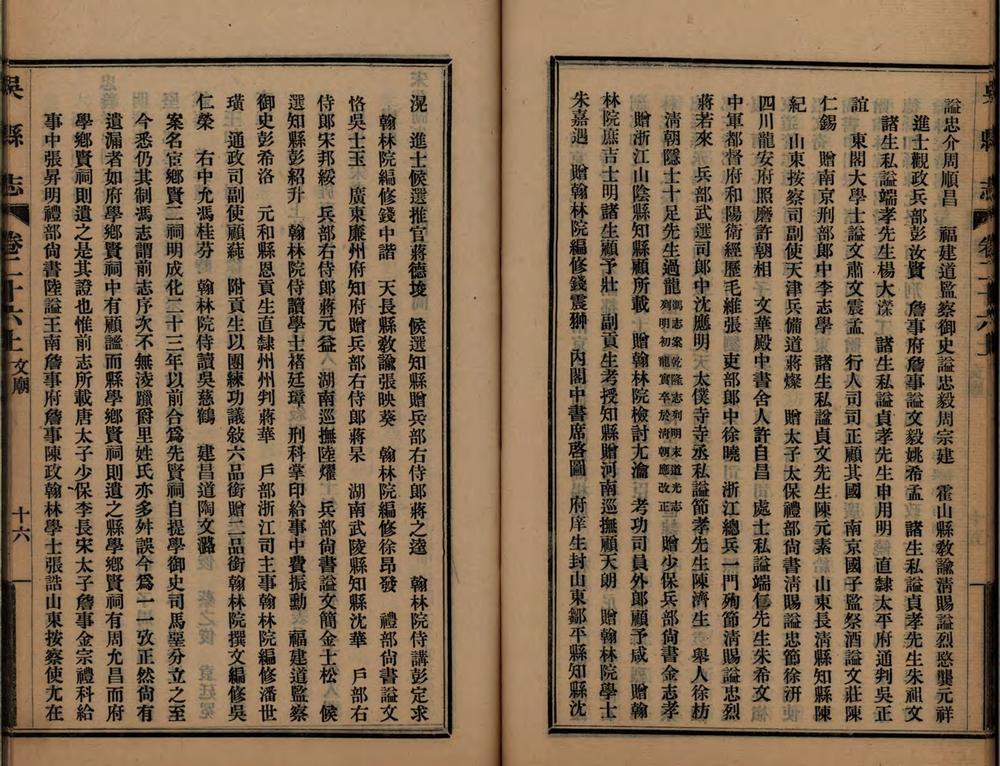 諡忠介周順昌　福建道監察御史諡忠毅周宗建　霍山縣敎諭淸賜諡烈愍龔元祥
進士觀政兵部彭汝賢　詹事府詹事諡文毅姚希孟　諸生私諡貞孝先生朱祖文
諸生私諡端孝先生楊大濚　諸生私諡貞孝先生申用明　直隸太平府通判吳正
誼　東閣大學士諡文肅文震孟　行人司司正顧其國　南京國子監祭酒諡文莊陳
仁錫　贈南京刑部郎中李志學　諸生私諡貞文先生陳元素　山東長淸縣知縣陳
紀　山東按察司副使天津兵備道蔣燦　贈太子太保禮部尙書淸賜諡忠節徐汧
四川龍安府照磨許朝相　文華殿中書舍人許自昌　處士私諡端㥶先生朱希文
中軍都督府和陽衞經歷毛維張　吏部郎中徐曉　浙江總兵一門殉節淸賜諡忠烈
蔣若來　兵部武選司郎中沈應明　太僕寺寺丞私諡節孝先生陳濟生　舉人徐枋
淸朝隱士十足先生過龍馮志案乾隆志利明末道光志列明初龍實卒於淸朝應改正　贈少保兵部尙書金志孝
贈浙江山陰縣知縣顧所載　贈翰林院檢討尤瀹　考功司員外郎顧予咸　贈翰
林院庶吉士明諸生顧予壯　副貢生考授知縣贈河南巡撫顧天朗　贈翰林院學士
朱嘉遇　贈翰林院編修錢震翀　內閣中書席啓圖　府庠生封山東鄒平縣知縣沈
吳縣志　卷二十六上　文廟　十六
滉　進士候選推官蔣德埈　候選知縣贈兵部右侍郎蔣之逵　翰林院侍講彭定求
翰林院編修錢中諧　天長縣敎諭張映葵　翰林院編修徐昂發　禮部尙書諡文
恪吳士玉　廣東廉州府知府贈兵部右侍郎蔣杲　湖南武陵縣知縣沈華　戶部右
侍郎宋邦綏　兵部右侍郎蔣元益　湖南巡撫陸燿　兵部尙書諡文簡金士松　候
選知縣彭紹升　翰林院侍讀學士褚廷璋　刑科掌印給事中費振勳　福建道監察
御史彭希洛　元和縣恩貢生直隸州州判蔣華　戶部浙江司主事翰林院編修潘世
璜　通政司副使顧蒓　附貢生以團練功議敍六品銜贈二品銜翰林院撰文編修吳
仁榮　右中允馮桂芬　翰林院侍讀吳慈鶴　建昌道陶文潞
案名宦鄕賢二祠明成化二十三年以前合爲先賢祠自提學御史司馬堊分立之至
今悉仍其制馮志謂前志序次不無淩躐爵里姓氏亦多舛誤今爲一一攷正然尙有
遺漏者如府學鄕賢祠中有顧謐而縣學鄕賢祠則遺之縣學鄕賢祠有周允昌而府
學鄕賢祠則遺之是其證也惟前志所載唐太子少保李長宋太子詹事金宗禮科給
事中張昇明禮部尙書陸謚王南詹事府詹事陳政翰林學士張誥山東按察使尤在